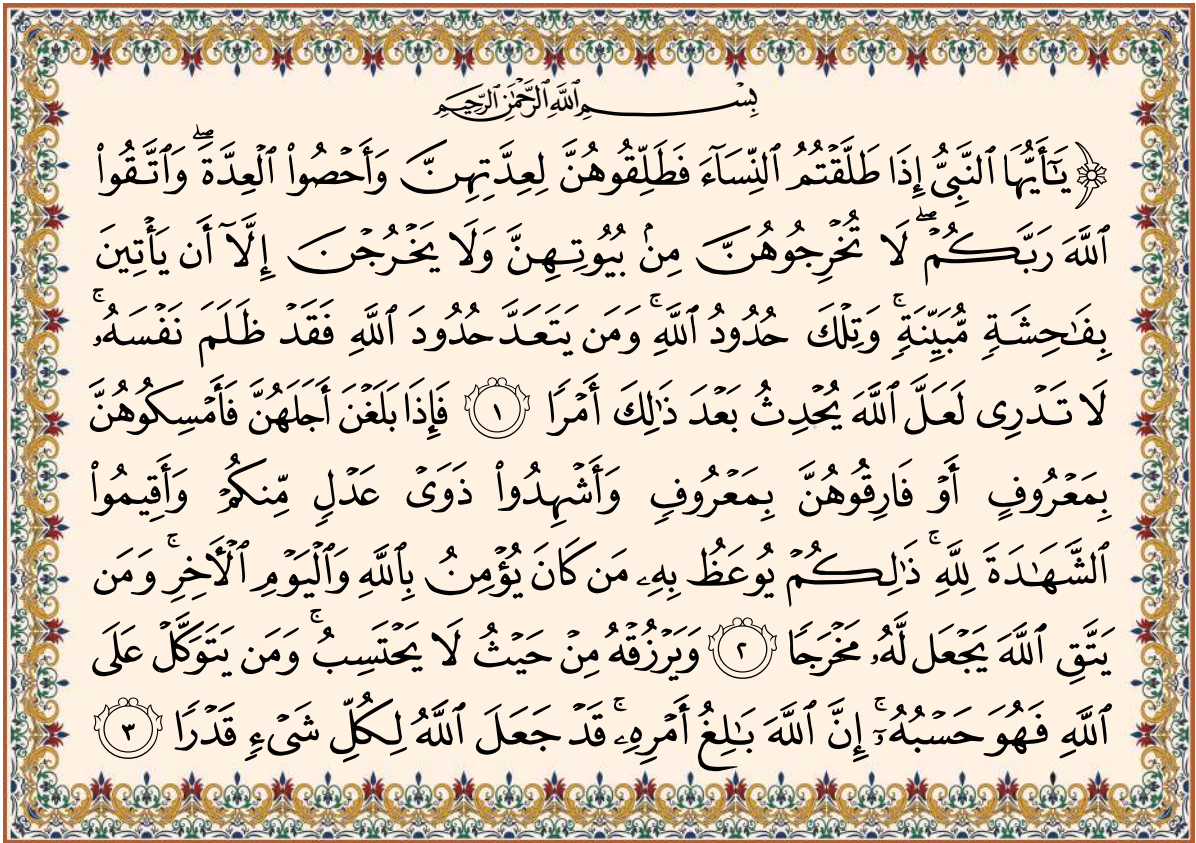 بِسْمِ ٱللَّهِ ٱلرَّحْمَٰنِ ٱلرَّحِيمِ
﴿يَٰٓأَيُّهَا ٱلنَّبِىُّ إِذَا طَلَّقْتُمُ ٱلنِّسَآءَ فَطَلِّقُوهُنَّ لِعِدَّتِهِنَّ وَأَحْصُوا۟ ٱلْعِدَّةَ ۖ وَٱتَّقُوا۟
ٱللَّهَ رَبَّكُمْ ۖ لَا تُخْرِجُوهُنَّ مِنۢ بُيُوتِهِنَّ وَلَا يَخْرُجْنَ إِلَّآ أَن يَأْتِينَ
بِفَٰحِشَةٍ مُّبَيِّنَةٍ ۚ وَتِلْكَ حُدُودُ ٱللَّهِ ۚ وَمَن يَتَعَدَّ حُدُودَ ٱللَّهِ فَقَدْ ظَلَمَ نَفْسَهُۥ ۚ
لَا تَدْرِى لَعَلَّ ٱللَّهَ يُحْدِثُ بَعْدَ ذَٰلِكَ أَمْرًا ١ فَإِذَا بَلَغْنَ أَجَلَهُنَّ فَأَمْسِكُوهُنَّ
بِمَعْرُوفٍ أَوْ فَارِقُوهُنَّ بِمَعْرُوفٍ وَأَشْهِدُوا۟ ذَوَىْ عَدْلٍ مِّنكُمْ وَأَقِيمُوا۟
ٱلشَّهَٰدَةَ لِلَّهِ ۚ ذَٰلِكُمْ يُوعَظُ بِهِۦ مَن كَانَ يُؤْمِنُ بِٱللَّهِ وَٱلْيَوْمِ ٱلْءَاخِرِ ۚ وَمَن
يَتَّقِ ٱللَّهَ يَجْعَل لَّهُۥ مَخْرَجًا ٢ وَيَرْزُقْهُ مِنْ حَيْثُ لَا يَحْتَسِبُ ۚ وَمَن يَتَوَكَّلْ عَلَى
ٱللَّهِ فَهُوَ حَسْبُهُۥٓ ۚ إِنَّ ٱللَّهَ بَٰلِغُ أَمْرِهِۦ ۚ قَدْ جَعَلَ ٱللَّهُ لِكُلِّ شَىْءٍ قَدْرًا ٣